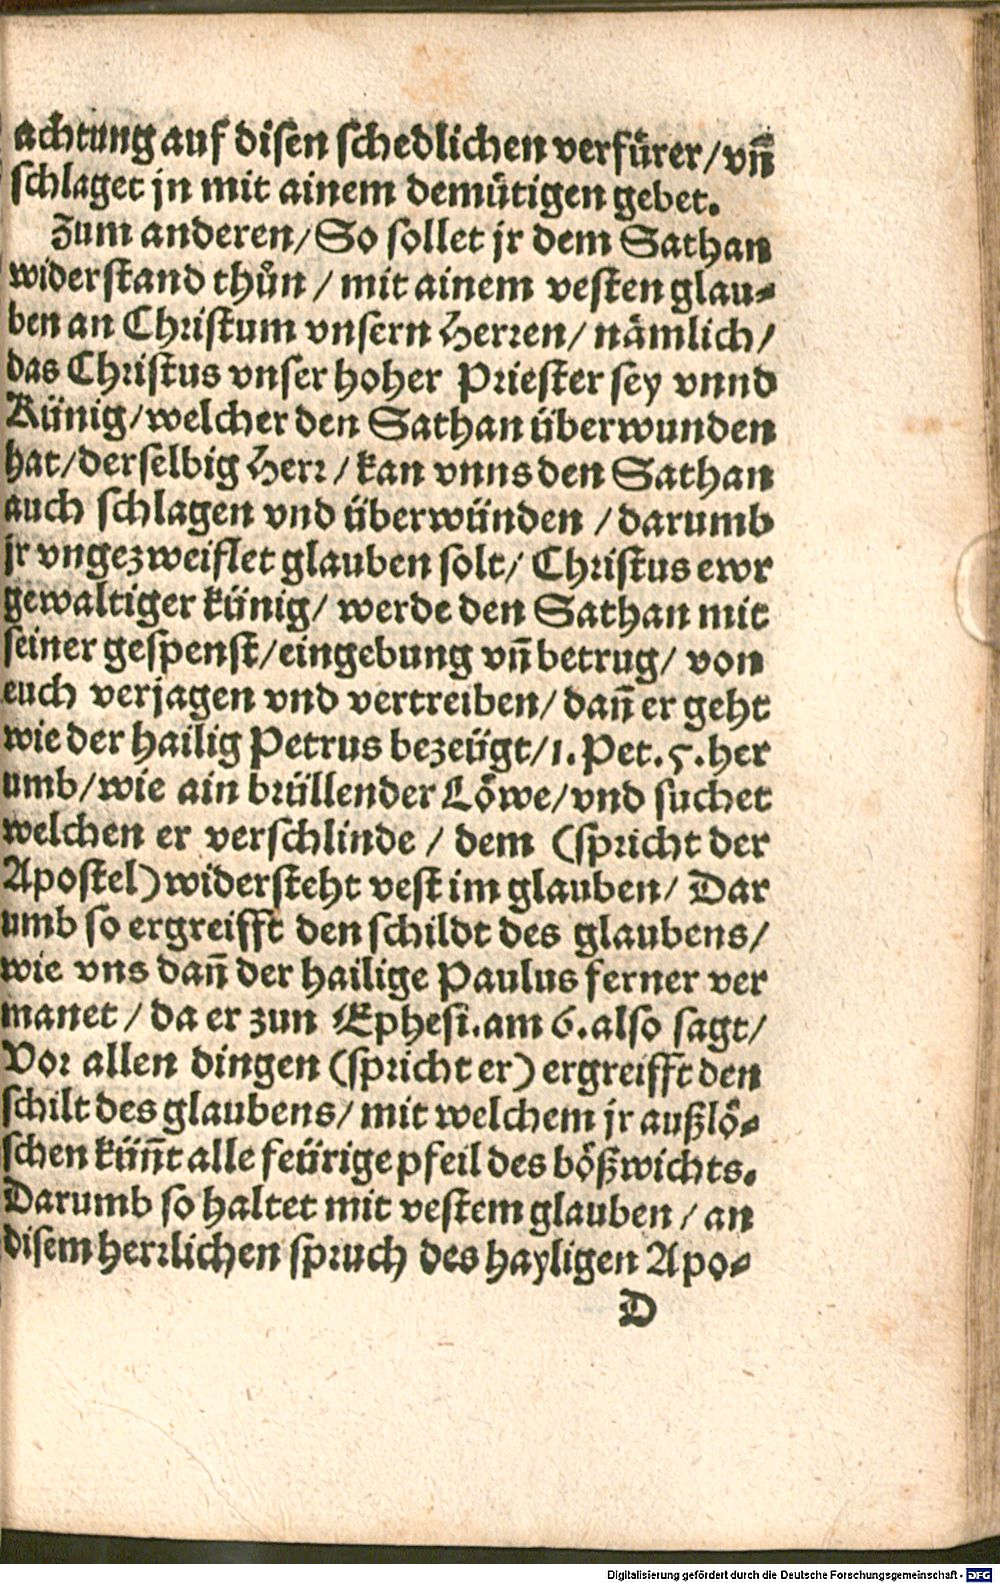 achtung auf disen schedlichen verfürer/ vñ
schlaget jn mit ainem demütigen gebet.
Zum anderen/ So sollet jr dem Sathan
widerstand thůn / mit ainem vesten glau⸗
ben an Christum vnsern Herren/ nämlich/
das Christus vnser hoher Priester sey vnnd
Künig/ welcher den Sathan überwunden
hat/ derselbig Herr / kan vnns den Sathan
auch schlagen vnd überwünden / darumb
jr vngezweiflet glauben solt/ Christus ewr
gewaltiger künig/ werde den Sathan mit
seiner gespenst/ eingebung vñ betrug/ von
euch verjagen vnd vertreiben/ dañ er geht
wie der hailig Petrus bezeügt/ 1. Pet. 5. her
umb/ wie ain brüllender Löwe/ vnd suchet
welchen er verschlinde / dem (spricht der
Apostel) widersteht vest im glauben/ Dar
umb so ergreifft den schildt des glaubens/
wie vns dañ der hailige Paulus ferner ver
manet / da er zun Ephesi. am 6. also sagt/
Vor allen dingen (spricht er) ergreifft den
schilt des glaubens/ mit welchem jr außlö⸗
schen küñt alle feürige pfeil des bößwichts.
Darumb so haltet mit vestem glauben / an
disem herrlichen spruch des hayligen Apo⸗
D
Digitalisierung gefördert durch die Deutsche Forschungsgemeinschaft - DFG